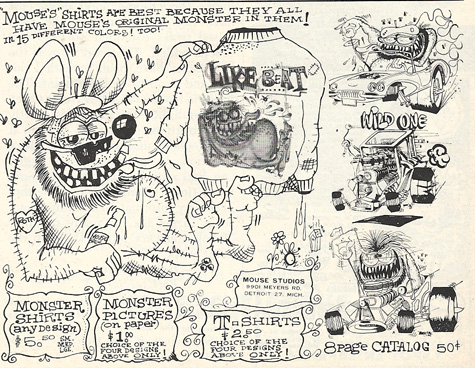 MOUSE'S" SHIRTS ARE BEST BECAUSE THEY ALL
HAVE MOUSE'S ORIGINAL MONSTER IN THEM!
IN 15 DIFFERENT COLORS! TOO!
LIKE BEAT
WILD ONE
MOUSE STUDIOS
9901 MEYERS RD.
DETROIT 27, MICH.
MONSTER
SHIRTS
(any DESIGN)
$5.50
SM.
MED.
LGE.
MONSTER
PICTURES
(on paper)
$1.00
CHOICE OF THE
FOUR DESIGNS
ABOVE ONLY!
T-SHIRTS
$2.50
CHOICE OF THE
FOUR DESIGNS
ABOVE ONLY!
8 page CATALOG 50¢